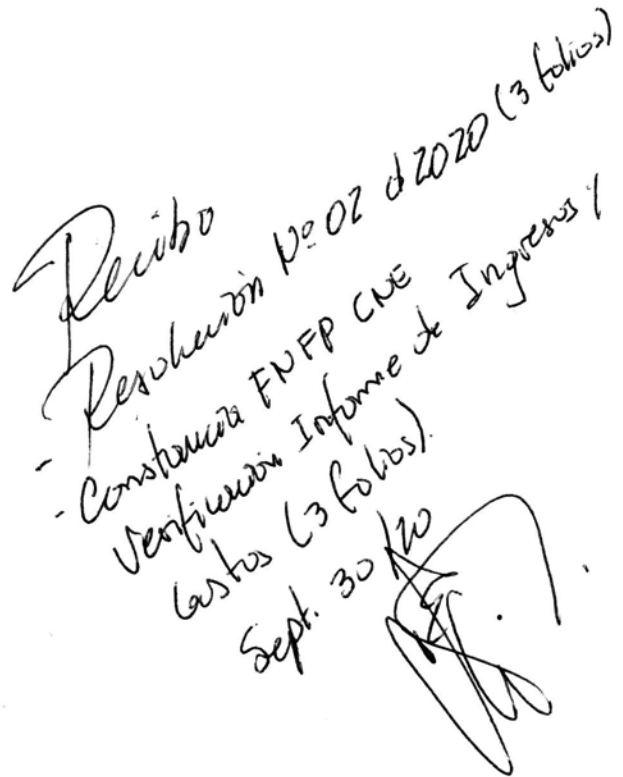 Recibo
- Resolución Nº 02 d 2020 (3 folios)
- Constancia FNFP CNE
Verificación Informe de Ingresos y
Gastos (3 folios).
Sept. 30/20